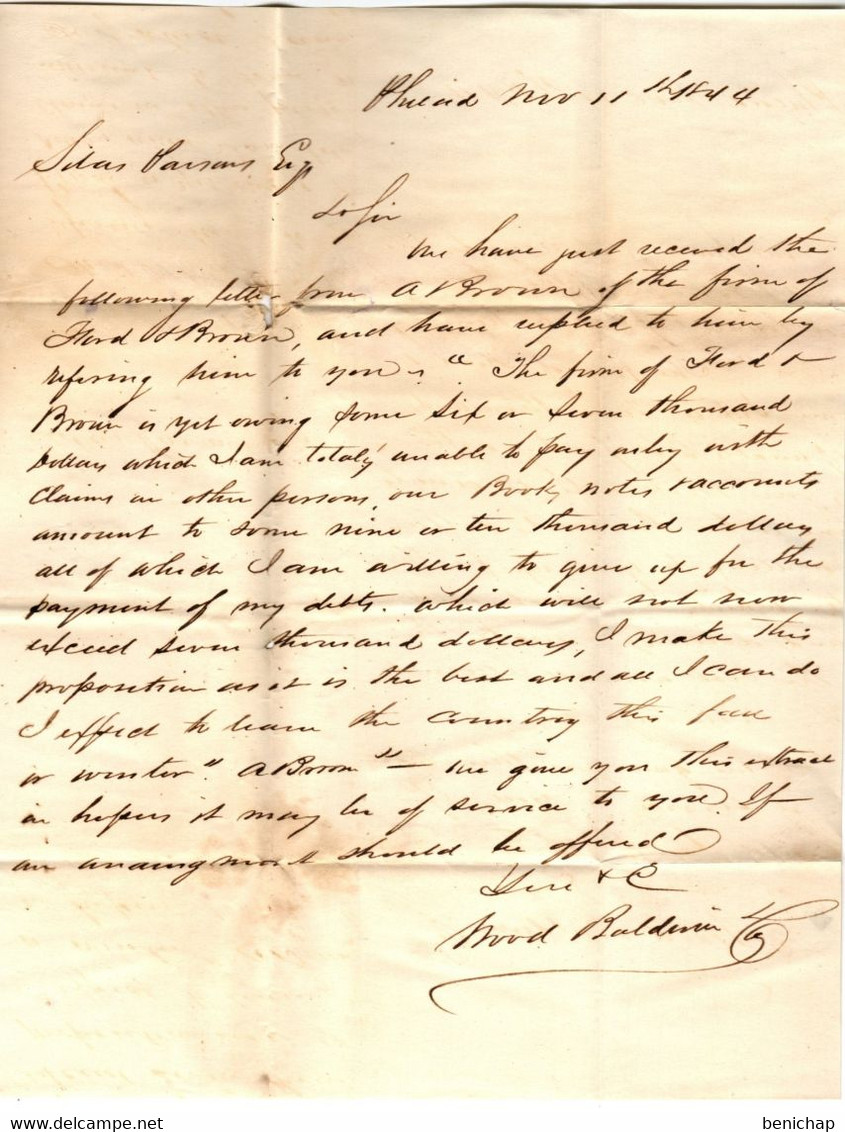 Philad Nov 11th 1844
Silas Parsons Esq
Dr Sir
We have just received the
following letter from A Brown of the firm of
Ford & Brown, and have replied to him by
refering him to you "The firm of Ford &
Brown is yet owing some six or seven thousand
Dollars which I am totaly unable to pay only with
Claims on other persons, our Books, notes & accounts
amount to some nine or ten thousand dollars
all of which I am willing to give up for the
payment of my debts. which will not now
exceed seven thousand dollars, I make this
proposition as it is the best and all I can do
I expect to leave the country this fall
or winter". A Brown" — We give you this extract
in hopes it may be of service to you If
an arraingment should be offered
Yers & C
Wood Baldwin & Co
www.delcampe.net
benichap